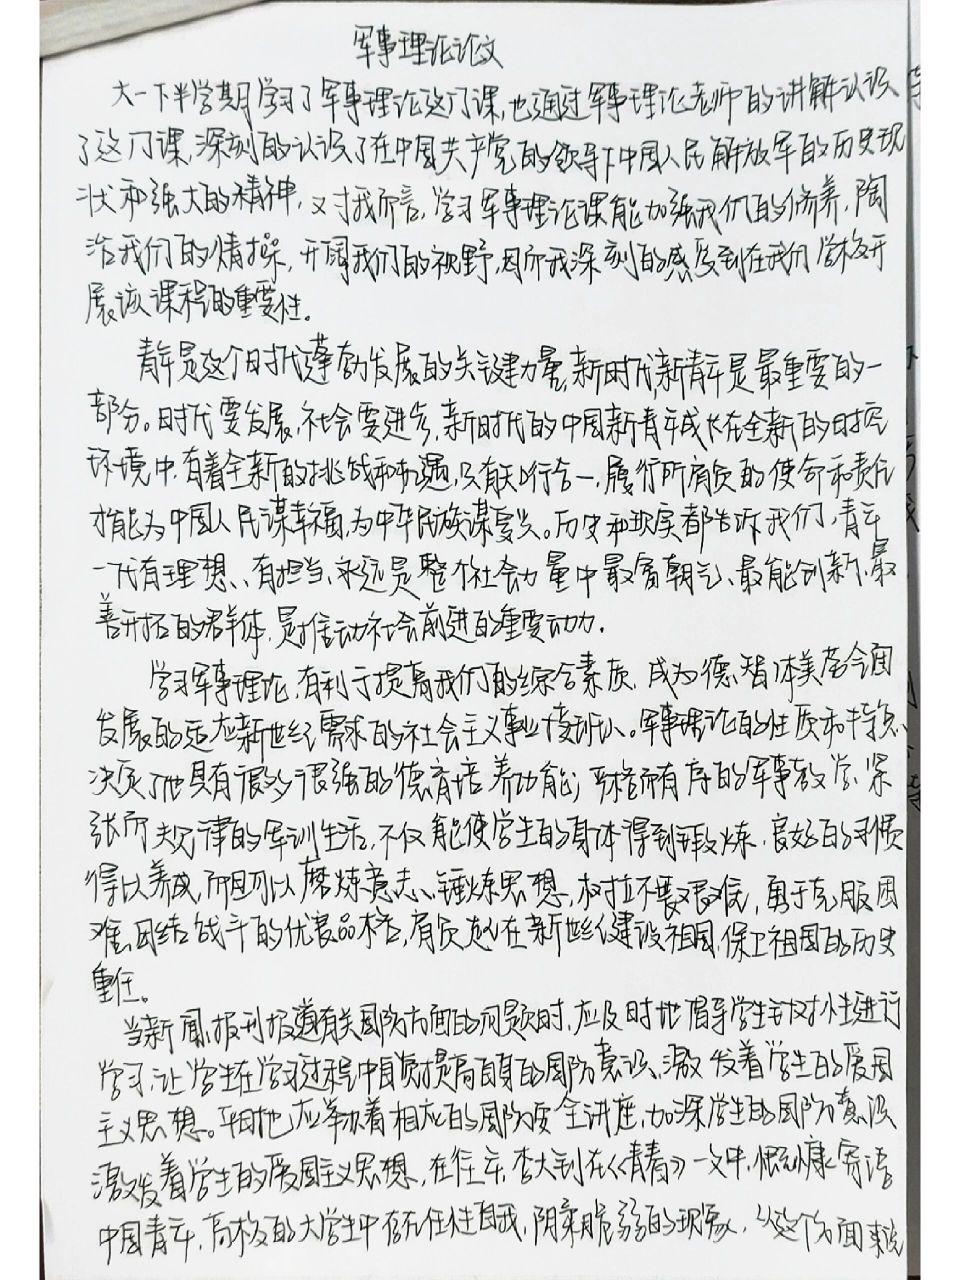 军事理论论文
大一下半学期学习了军事理论这门课,也通过军事理论老师的讲解认识
了这门课,深刻的认识了在中国共产党的领导下中国人民解放军的历史现
状和强大的精神,又对我而言,学习军事理论课能加强我们的修养,陶
冶我们的情操,开阔我们的视野,因而我深刻的感受到在我们学校开
展该课程的重要性。
青年是这个时代蓬勃发展的关键力量,新时代新青年是最重要的一
部分。时代要发展,社会要进步,新时代的中国新青年成长在全新的时空
环境中,有着全新的挑战和机遇,只有知行合一,履行所肩负的使命和责任
才能为中国人民谋幸福,为中华民族谋复兴。历史和现实都告诉我们,青年
一代有理想、有担当,永远是整个社会力量中最富朝气、最能创新、最
善开拓的群体,是推动社会前进的重要动力.
学习军事理论,有利于提高我们的综合素质,成为德智体美劳全面
发展的适应新世纪需求的社会主义事业接班人。军事理论的性质和特点,
决定了他具有很多很强的德育培养功能;严格而有序的军事教学,紧
张而规律的军训生活,不仅能使学生的身体得到锻炼,良好的习惯
得以养成,而且可以磨炼意志、锤炼思想,树立不畏艰难,勇于克服困
难,团结战斗的优良品格,肩负起在新世纪建设祖国,保卫祖国的历史
重任。
当新闻、报刊报道有关国防方面的问题时,应及时地倡导学生针对性进行
学习,让学生在学习过程中自觉提高自身的国防意识,激发着学生的爱国
主义思想。平时也应举办着相应的国防安全讲座,加深学生的国防意识
激发着学生的爱国主义思想,在往年,李大钊在《青春》一文中,慨慷寄语
中国青年,高校的大学生中存在任性自我,阴柔脆弱的现象,从这个方面来说